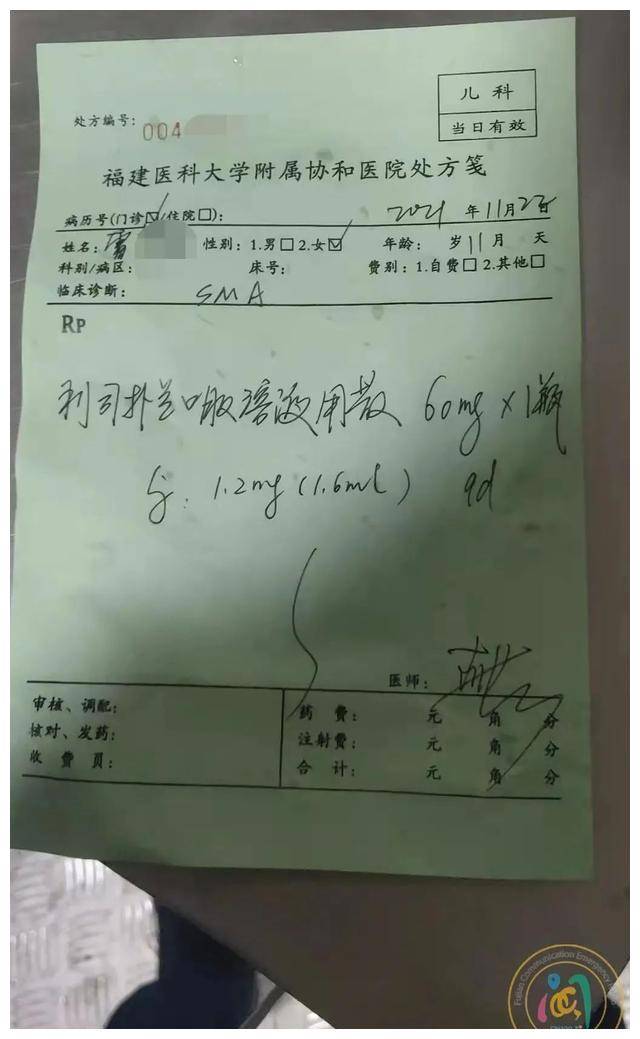 儿科
当日有效
处方编号: 004
福建医科大学附属协和医院处方笺
病历号(门诊☑/住院☐): 2021 年 11 月 22 日
姓名: 雷 性别: 1.男☐ 2.女☑ 年龄: 岁 11 月 天
科别/病区: 床号: 费别: 1.自费☐ 2.其他☐
临床诊断: SMA
RP
利司扑兰口服溶液用散 60mg×1瓶
1.2mg (1.6ml) qd
医师:
审核、调配: 药 费: 元 角 分
核对、发药: 注射费: 元 角 分
收 费 员: 合 计: 元 角 分
Fujian Communication Emergency